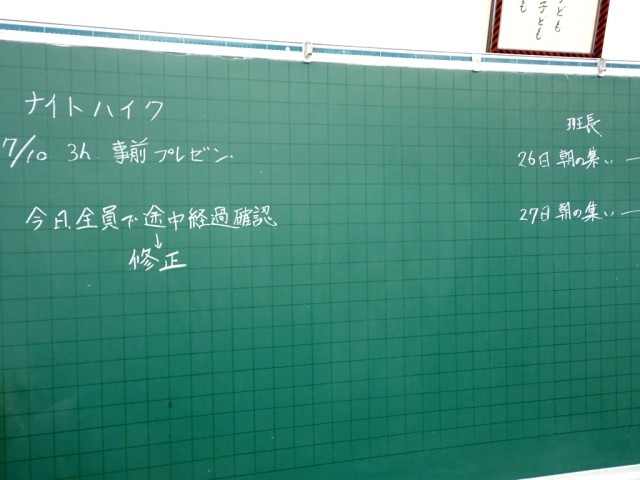 ども
子ども
も
ナイトハイク
7/10 3h 事前プレゼン.
今日全員で途中経過確認
↓
修正
班長
26日朝の集い ー
27日朝の集い ー